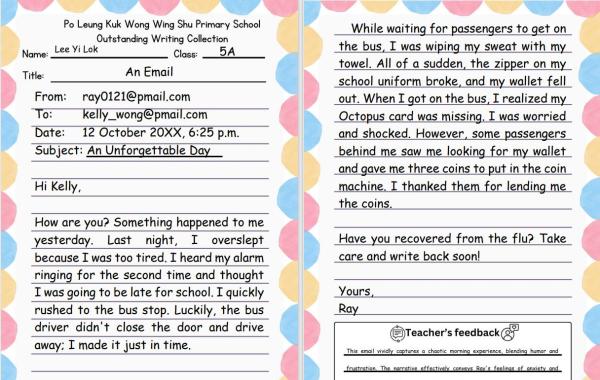 Po Leung Kuk Wong Wing Shu Primary School
Outstanding Writing Collection
Name: Lee Yi Lok Class: 5A
Title: An Email
From: ray0121@pmail.com
To: kelly_wong@pmail.com
Date: 12 October 20XX, 6:25 p.m.
Subject: An Unforgettable Day
Hi Kelly,
How are you? Something happened to me
yesterday. Last night, I overslept
because I was too tired. I heard my alarm
ringing for the second time and thought
I was going to be late for school. I quickly
rushed to the bus stop. Luckily, the bus
driver didn't close the door and drive
away; I made it just in time.
While waiting for passengers to get on
the bus, I was wiping my sweat with my
towel. All of a sudden, the zipper on my
school uniform broke, and my wallet fell
out. When I got on the bus, I realized my
Octopus card was missing. I was worried
and shocked. However, some passengers
behind me saw me looking for my wallet
and gave me three coins to put in the coin
machine. I thanked them for lending me
the coins.
Have you recovered from the flu? Take
care and write back soon!
Yours,
Ray
Teacher's feedback
This email vividly captures a chaotic morning experience, blending humor and
frustration. The narrative effectively conveys Ray's feelings of anxiety and